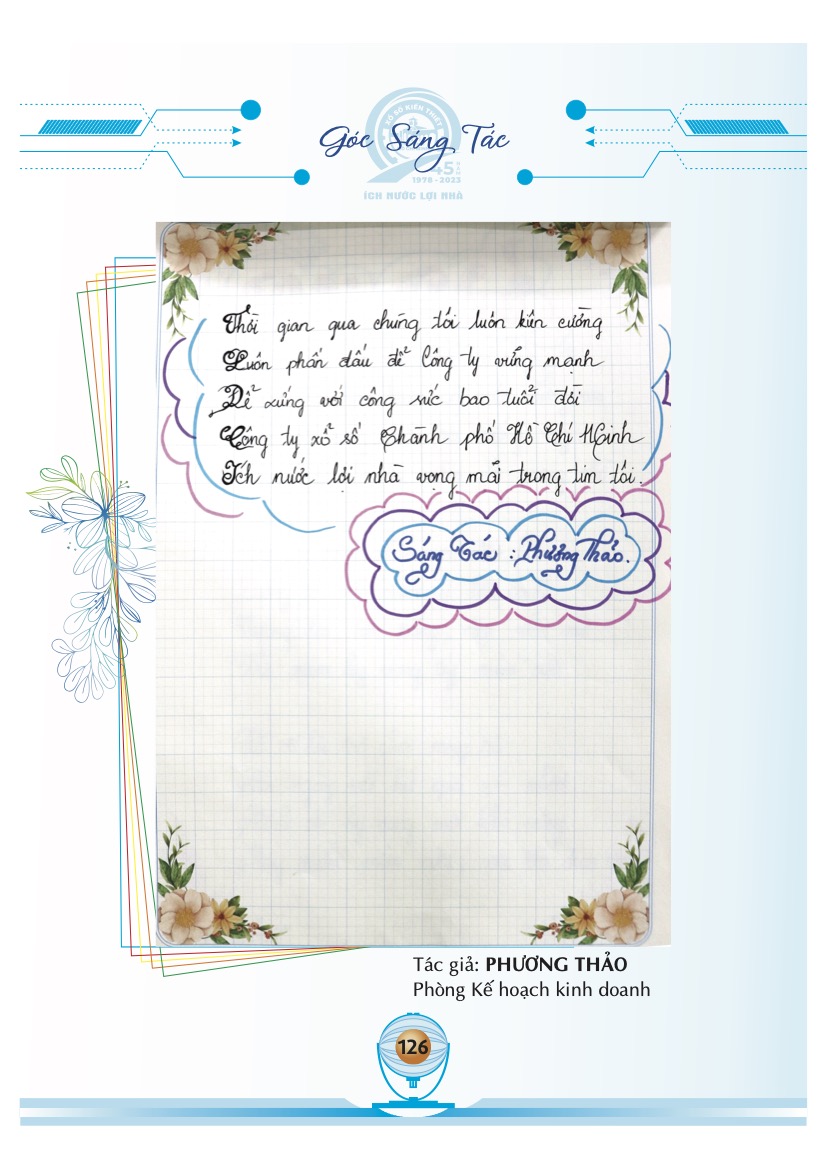 Góc Sáng Tác
XỔ SỐ KIẾN THIẾT
45 NĂM
1978 - 2023
ÍCH NƯỚC LỢI NHÀ
Thời gian qua chúng tôi luôn kiên cường
Luôn phấn đấu để Công ty vững mạnh
Để xứng với công sức bao tuổi đời
Công ty xổ số Thành phố Hồ Chí Minh
Ích nước lợi nhà vọng mãi trong tim tôi.
Sáng Tác : Phương Thảo.
Tác giả: PHƯƠNG THẢO
Phòng Kế hoạch kinh doanh
126